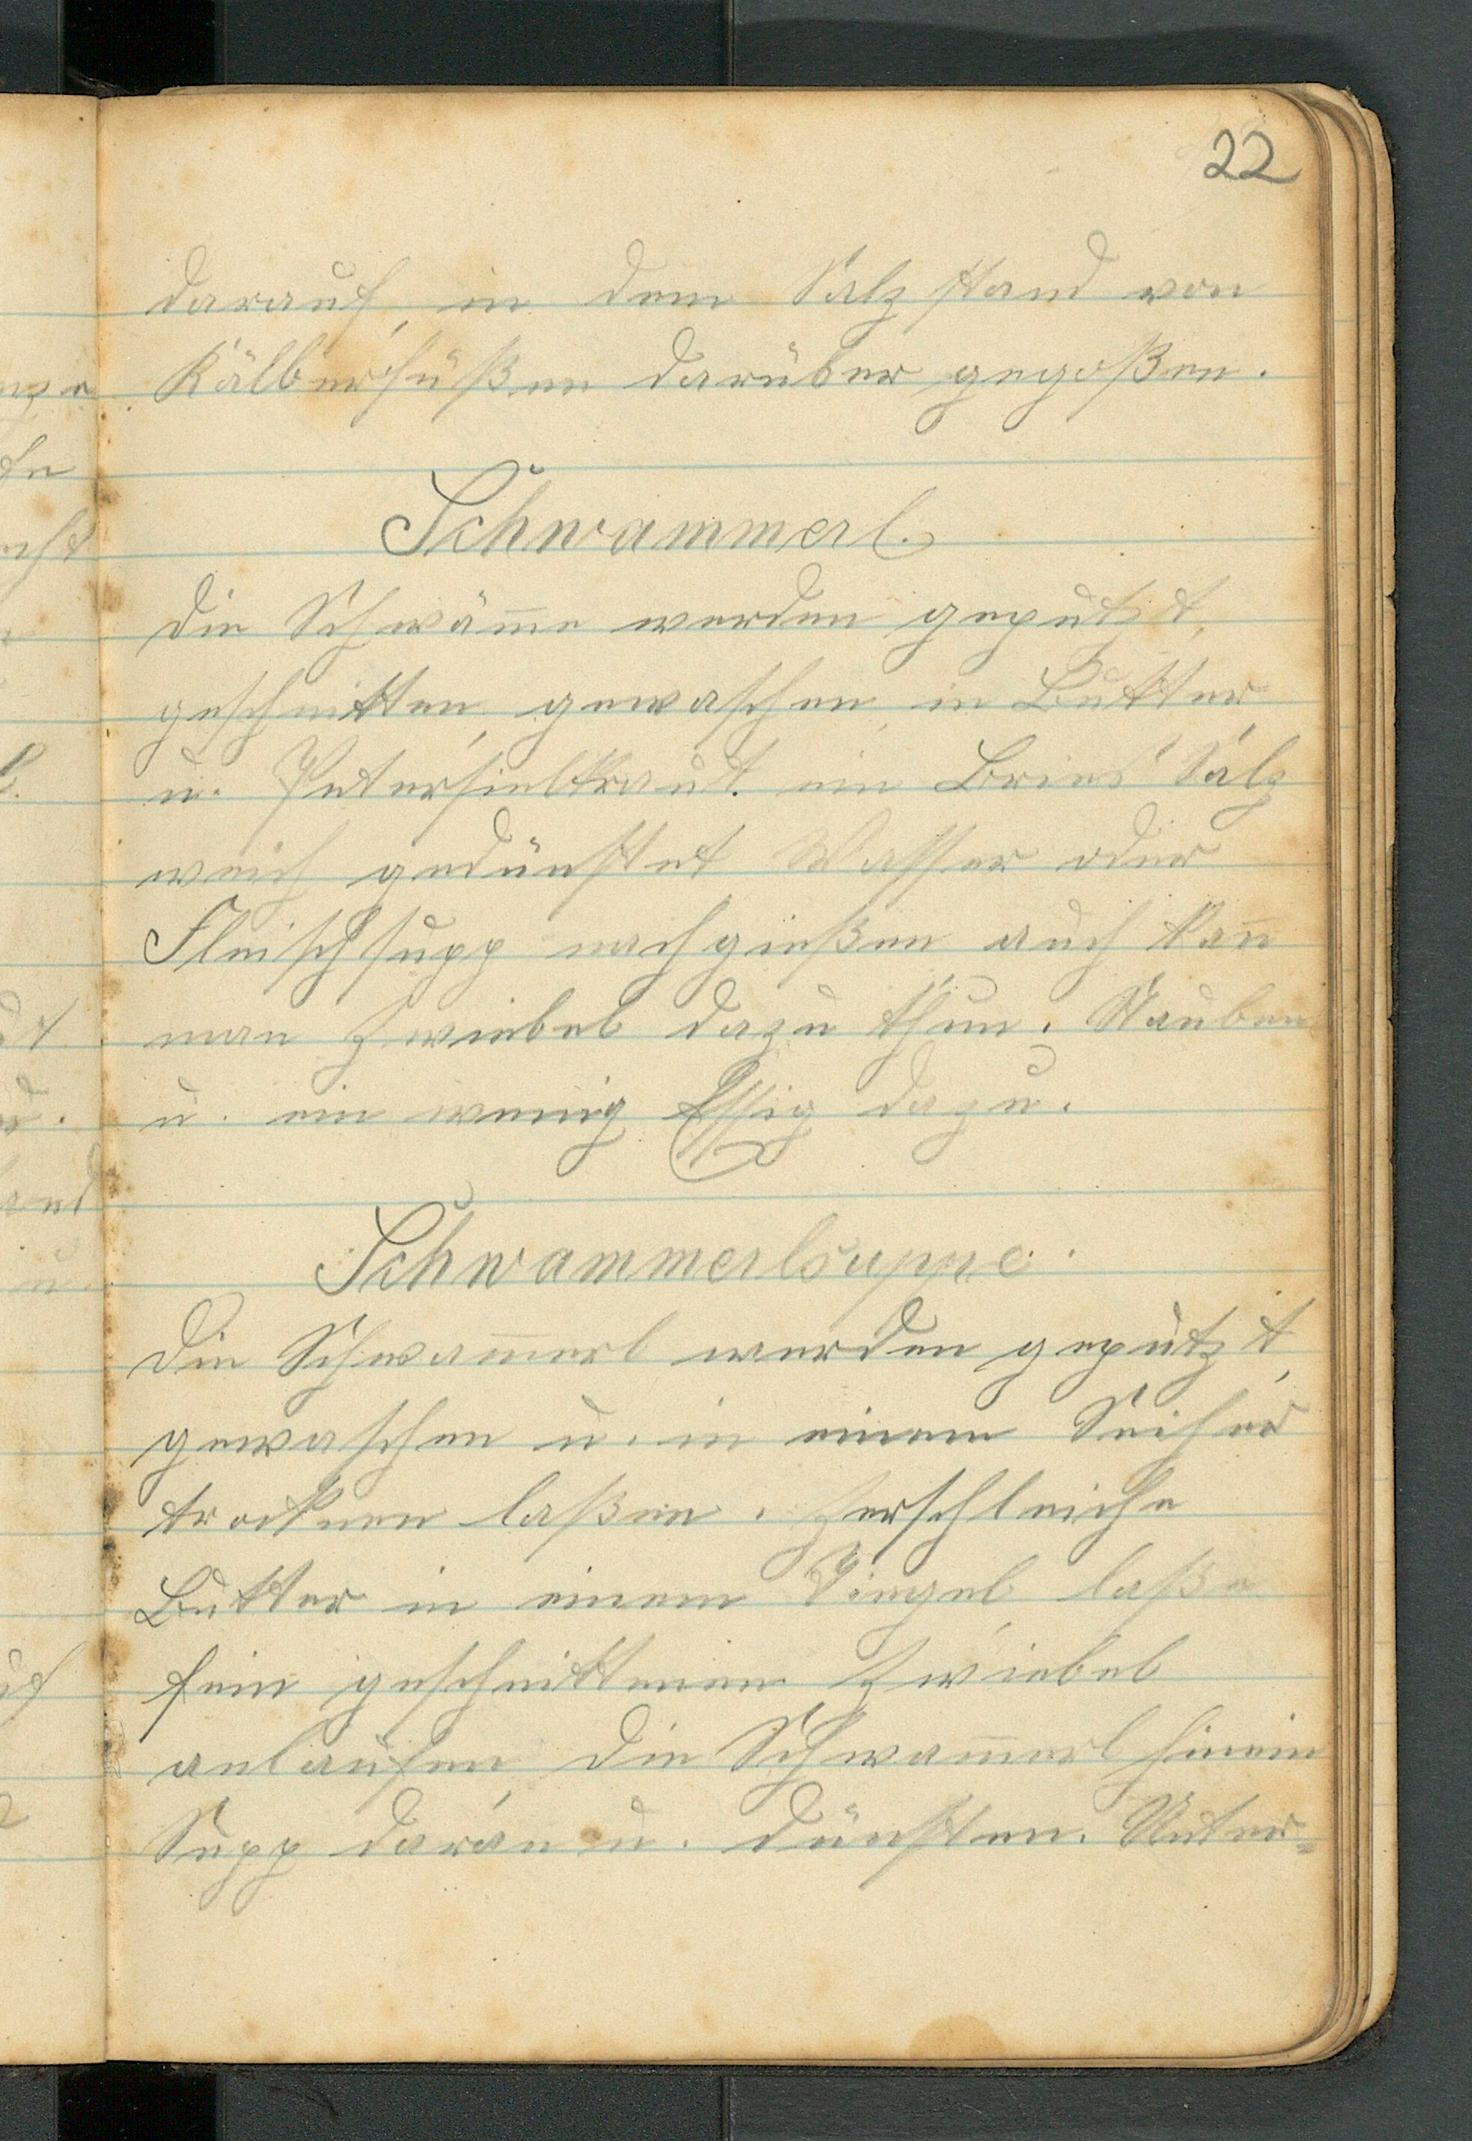 22
darauf, in dem Salz stand von
Kälberfüßen darüber gegoßen.
Schwammerl.
Die Schwäm̄e werden geputzt,
geschnitten, gewaschen, in Butter
u. Petersielkraut. ein Bries Salz
weich gedünstet Wasser oder
Fleischsupp nachgießen auch kan̄
man Zwiebel dazu thun. Stauben
u. ein wenig Essig dazu.
Schwammerlsuppe.
Die Schwam̄erl werden geputzt,
gewaschen u. in einem Seiher
trocknen laßen. Zerschleiche
Butter in einem Tiegel, laße
fein geschnittenen Zwiebel
anlaufen, die Schwam̄erl hinein
Supp daran u. dünsten. Unter=